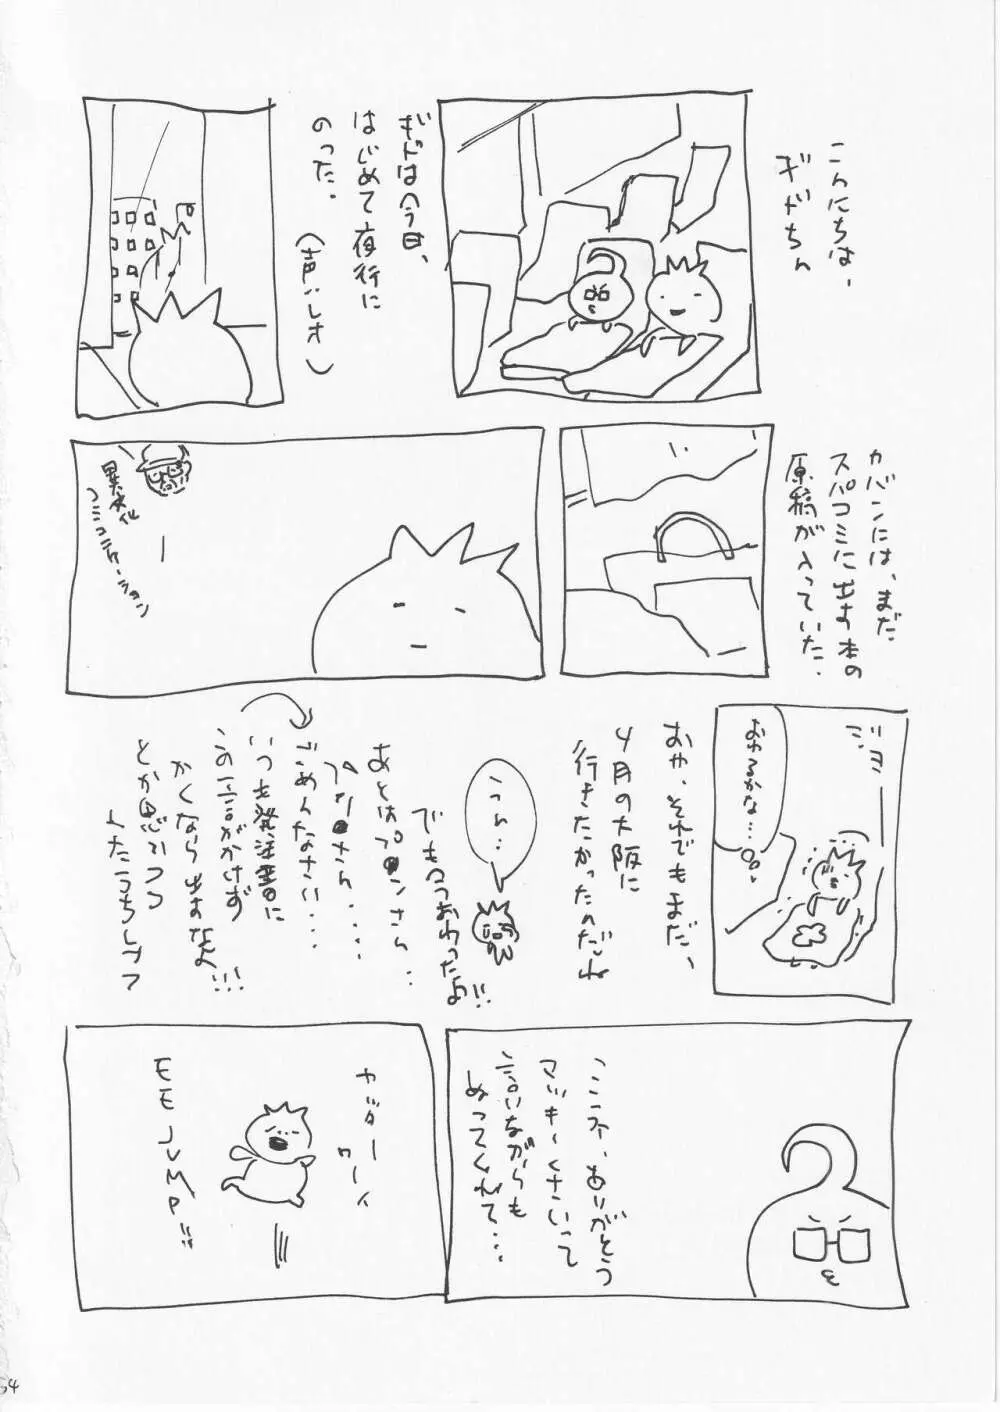 こんにちは、
ギドちん
ギドは今日、
はじめて夜行に
のった。
(声:レオ)
カバンには、まだ
スパコミに出す本の
原稿が入っていた。
コミュニケーション
おわるかな…
おや、それでもまだ、
4月の大阪に
行きたかったのだね
ううん…
でも1つおわったよ!!
ごめんなさい…
いつも発注書に
この一言がかけず
かくなら出すなよ!!!
とか思いつつ
くたうちしブつ
ここみ、ありがとう
マッキーくさいって
言いながらも
ぬってくれて…
カッター
ワーイ
EE JUMP!!